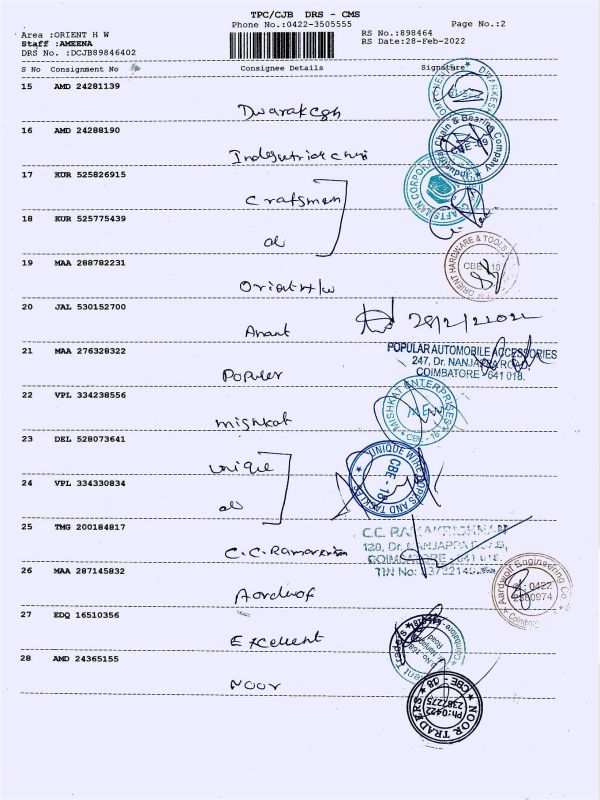 TPC/CJB DRS - CMS
Phone No.:0422-3505555
Page No.:2
Area :ORIENT H W
RS No.:898464
Staff :AMEENA
RS Date:28-Feb-2022
DRS No. :DCJB89846402
S No Consignment No Consignee Details Signature
15 AMD 24281139
Dwarakesh
16 AMD 24288190
Industrial Chain
Chain & Bearing Company
CBE
17 KUR 525826915
Craftsman
18 KUR 525775439
do
19 MAA 288782231
Orient H/W
ORIENT HARDWARE & TOOLS
CBE 18
20 JAL 530152700
Anant
28/2/2022
21 MAA 276328322
Populer
POPULAR AUTOMOBILE ACCESSORIES
247, Dr. NANJAPPA ROAD,
COIMBATORE - 641 018.
22 VPL 334238556
mishkat
MISHKAT ENTERPRISES
CBE - 18
23 DEL 528073641
unique
UNIQUE WIRE ROPES AND
CBE - 18
24 VPL 334330834
do
25 TMG 200184817
C.C. Ramakrishn
C.C. RAMAKRISHNAN
120, Dr. NANJAPPA ROAD,
COIMBATORE - 641 018.
TIN No:
26 MAA 287145832
Aardwolf
Aardwolf Engineering Co
0422
27 EDQ 16510356
Excellent
Traders
28 AMD 24365155
Noor
NOOR TRADERS
Ph:0422
2387275
CBE